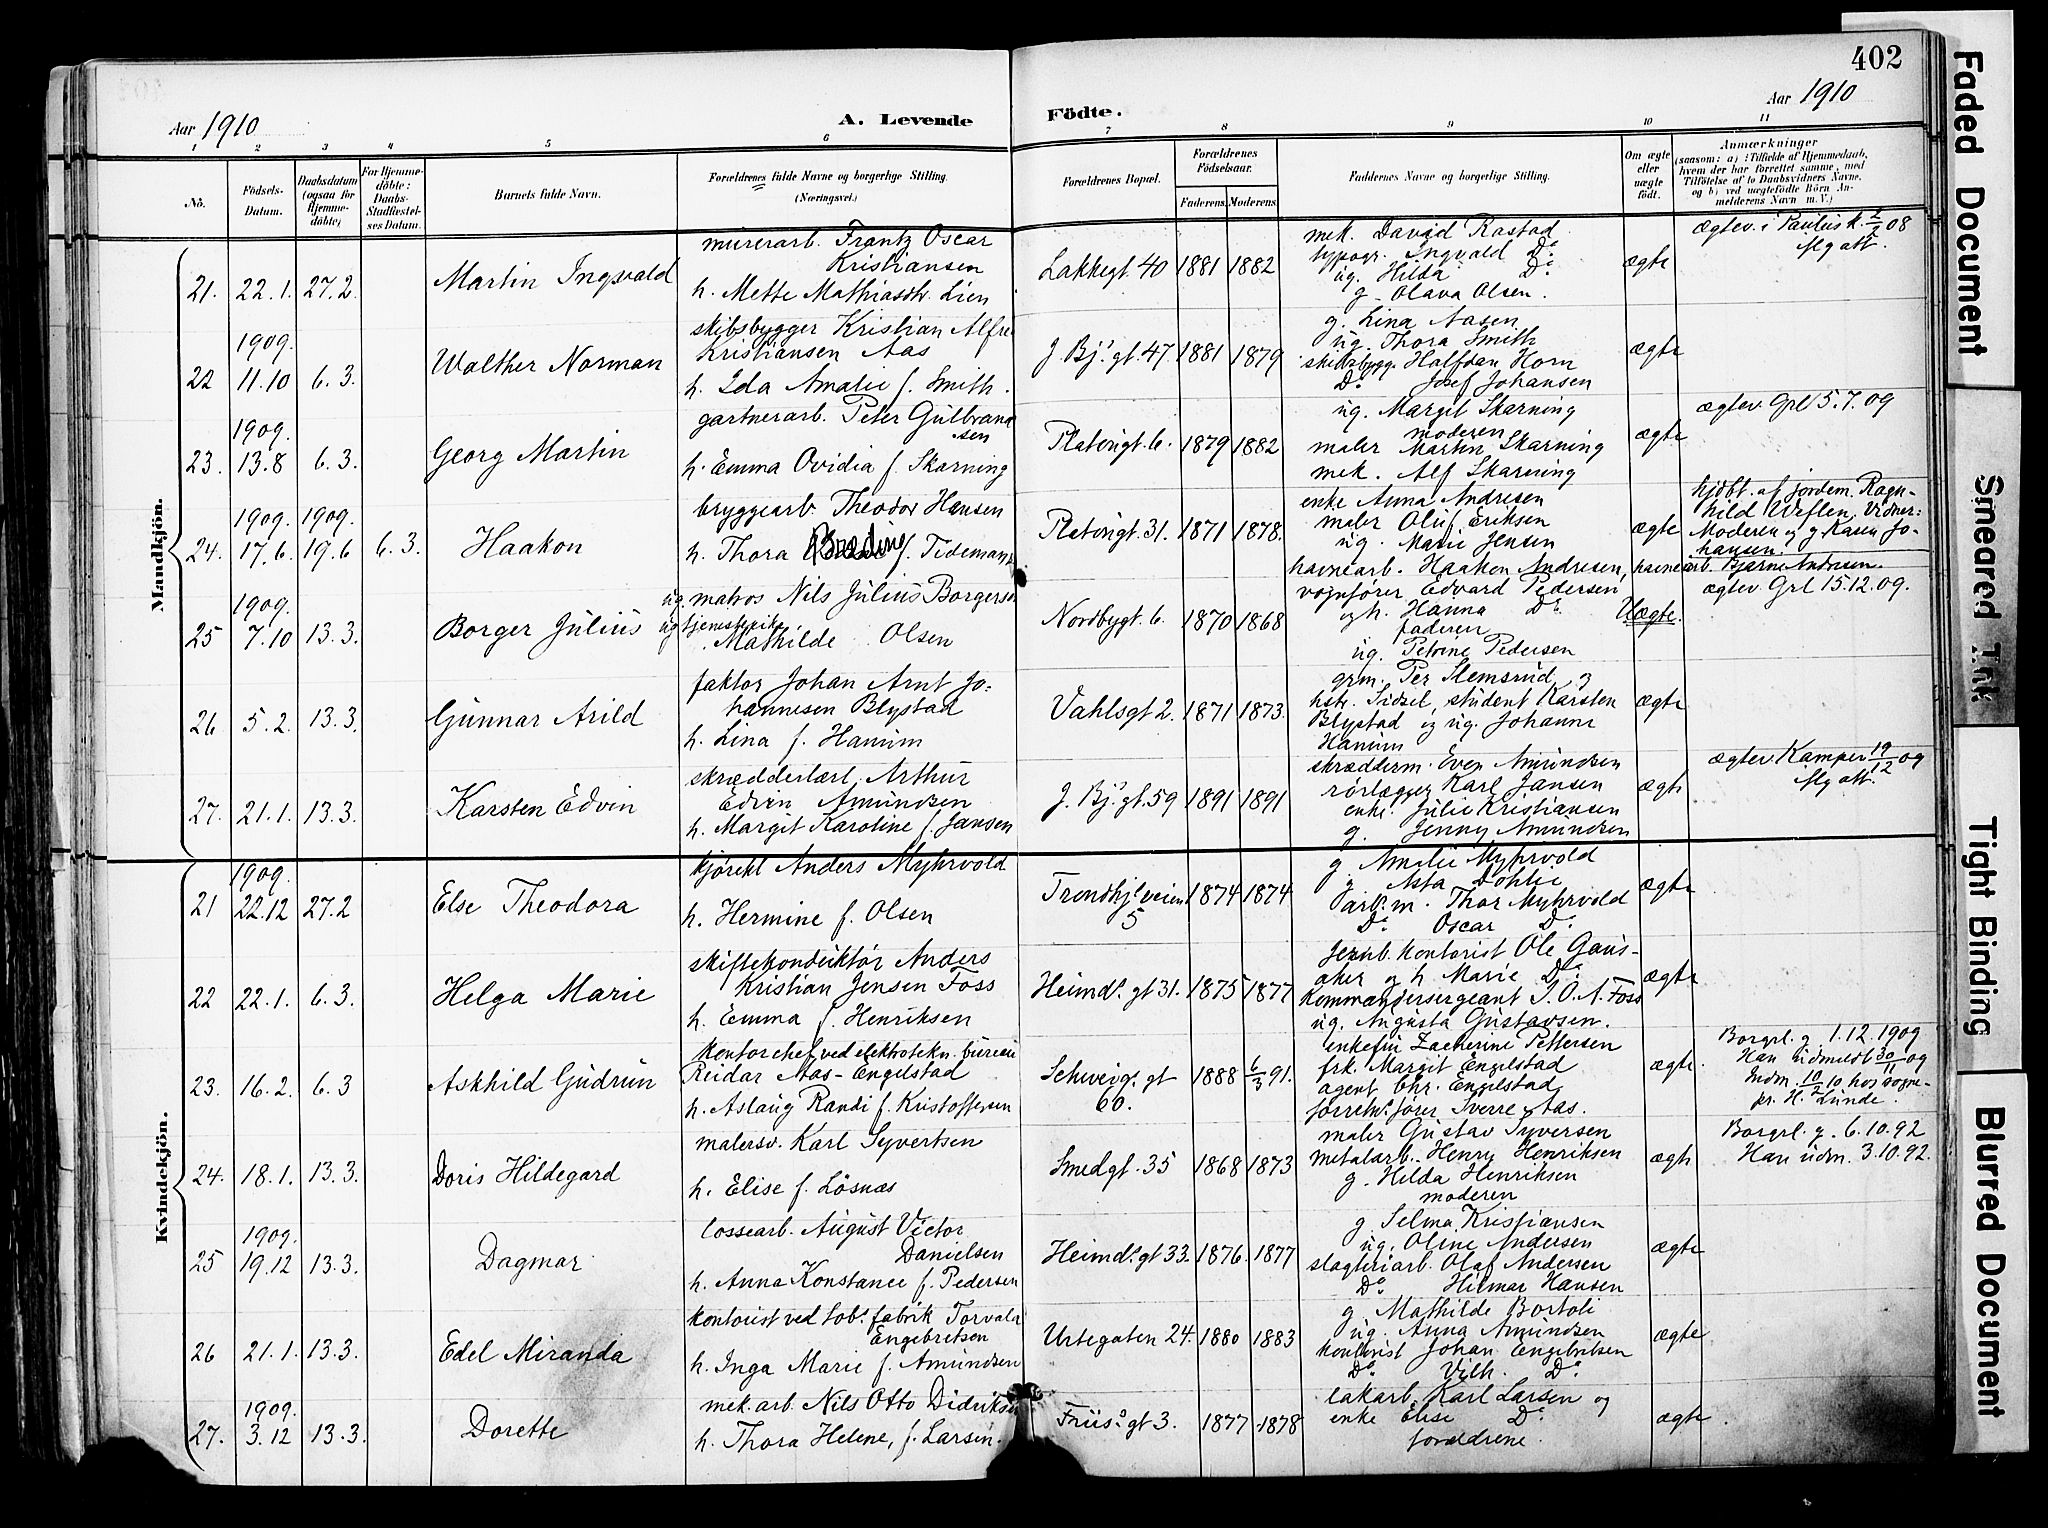 402
Aar 1910
A. Levende
Födte.
Aar 1910
1 2 3 4 5 6 7 8 9 10 11
No.
Födsels-Datum.
Daabsdatum (ogsaa for Hjemmedöbte)
For Hjemmedöbte: Daabs-Stadfæstelses Datum.
Barnets fulde Navn.
Forældrenes fulde Navne og borgerlige Stilling.
(Næringsvei.)
Forældrenes Bopæl.
Forældrenes Födselsaar.
Faderens.
Moderens.
Faddernes Navne og borgerlige Stilling.
Om ægte eller uægte födt.
Anmærkninger
(saasom: a) i Tilfælde af Hjemmedaab, hvem der har forrettet samme, med Tilföielse af to Daabsvidners Navne, og b) ved uægtefödte Börn Anmelderens Navn m. V.)
Mandkjön.
21. 22.1. 27.2. Martin Ingvald
murerarb. Frantz Oscar
Kristiansen
h. Mette Mathiasdtr. Lien
Lakkegt. 40 1881 1882
mek. David Rastad
typogr. Ingvald Do.
ug. Hilda Do.
g. Olava Olsen.
ægte
ægtev. i Paulus k. 2/2 08
flg att.
22 1909. 11.10 6.3. Walther Norman
skibsbygger Kristian Alfred
Kristiansen Aas
h. Ida Amalie f. Smith.
J. Bj.s gt. 47. 1881 1879
g. Lina Aasen
ug. Thora Smith
skibsbygg. Halfdan Horn
Do. Josef Johansen
ægte
23. 1909. 13.8 6.3. Georg Martin
gartnerarb. Peter Gulbrand
sen
h. Emma Ovidia f. Skarning
Platougt. 6. 1879 1882
ug. Margit Skarning
moderen
maler Martin Skarning
mek. Alf Skarning
ægte
ægtev. Grl 5.7.09
24. 1909. 17.6. 1909. 19.6 6.3. Haakon
bryggearb. Theodor Hansen
h. Thora Breding f. Tidemans
Platougt. 31. 1871 1878.
enke Anna Andresen
maler Oluf Eriksen
ug. Marie Jensen
havnearb. Haakon Andresen, havnearb. Bjarne Andresen.
ægte
hjdbt. af jordem. Ragn-
hild Veflen. Vidner:
Moderen og g Karen Jo-
hansen.
25 1909. 7.10 13.3. Borger Julius
ug. matros Nils Julius Borgersen
ug tjenestepike
Mathilde Olsen
Nordbygt. 6. 1870 1868
vognfører Edvard Pedersen
og h. Hanna Do.
faderen
ug. Petrine Pedersen
Uægte.
ægtev Grl 15.12.09.
26 5.2. 13.3. Gunnar Arild
faktor Johan Arnt Jo-
hannesen Blystad
h. Lina f. Hanum
Vahlsgt 2. 1871 1873.
grm. Per Slemsrud og
hstr. Sidsel, student Karsten
Blystad og ug. Johanne
Hanum
ægte
27. 21.1. 13.3. Karsten Edvin
skrædderlærl. Arthur
Edvin Amundsen
h. Margit Karoline f. Jansen
J. Bj.s gt. 59 1891 1891
skrædderm. Even Amundsen
rørlægger Karl Jansen
enke. Julie Kristiansen
g. Jenny Amundsen
ægte
ægtev Kamper 19/12 09
flg att.
Kvindekjön.
21 1909. 22.12 27.2 Else Theodora
kjørekl Anders Myhrvold
h. Hermine f. Olsen
Trondhj.s veien 5 1874 1874
g Amalie Myhrvold
g. Asta Døhlie
arb.m. Thor Myhrvold
Do. Oscar Do.
ægte
22 22.1. 6.3. Helga Marie
skiftekonduktør Anders
Kristian Jensen Foss
h. Emma f. Henriksen
Heimd.s gt 31. 1875 1877
jernb. kontorist Ole Gaus-
aker og h Marie Do.
kommandersergeant J. O. A. Foss
ug. Augusta Gustavsen.
ægte
23. 16.2. 6.3 Askhild Gudrun
kontorchef ved elektrotekn. bureau
Reidar Aas-Engelstad
h. Aslaug Randi f. Kristoffersen
Schweig.s gt 60. 1888 6/3 91.
enkefru Zacherine Pettersen
frk. Margit Engelstad
agent Chr. Engelstad
forretn.s fører Sverre Aas.
ægte
Borgrl. g. 1.12.1909
Han udmeldt 30/11 09
Indm. 10/2 10 hos sogne-
pr. H. Lunde.
24. 18.1. 13.3. Doris Hildegard
malersv. Karl Syvertsen
h. Elise f. Løsnæs
Smedgt. 35 1868 1873
maler Gustav Syversen
metalarb. Henry Henriksen
g. Hilda Henriksen
moderen
ægte
Borgrl. g. 6.10.92
Han udm. 3.10.92.
25 1909. 19.12 13.3. Dagmar
lossearb. August Victor
Danielsen
h. Anna Konstance f. Pedersen
Heimd.s gt 33. 1876. 1877
g Selma Kristiansen
ug. Oline Andersen
slagteriarb. Olaf Andersen
Do. Hilmar Hansen
ægte
26 21.1. 13.3. Edel Miranda
kontorist ved tob.s fabrik Torvald
Engebretsen
h. Inga Marie f. Amundsen
Urtegaten 24. 1880 1883
g. Mathilde Bortoli
ug. Anna Amundsen
kontorist Johan Engebretsen
Do. Vilh. Do.
ægte
27. 1909. 3.12 13.3. Dorette
mek. arb. Nils Otto Didriksen
h. Thora Helene, f. Larsen.
Friis.s gt 3. 1877 1878
lakarb. Karl Larsen og
enke Elise Do.
forældrene.
ægte.
Faded Document
Smeared Ink
Tight Binding
Blurred Document